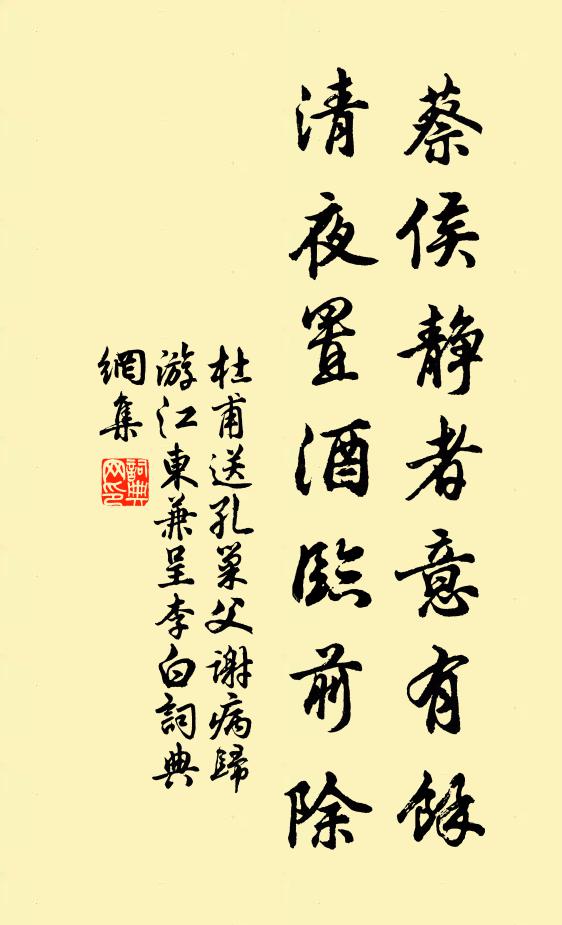 蔡侯静者意有餘
清夜置酒臨前除
杜甫送孔巢父谢病歸
游江東兼呈李白詞典
網集
詞典
网印